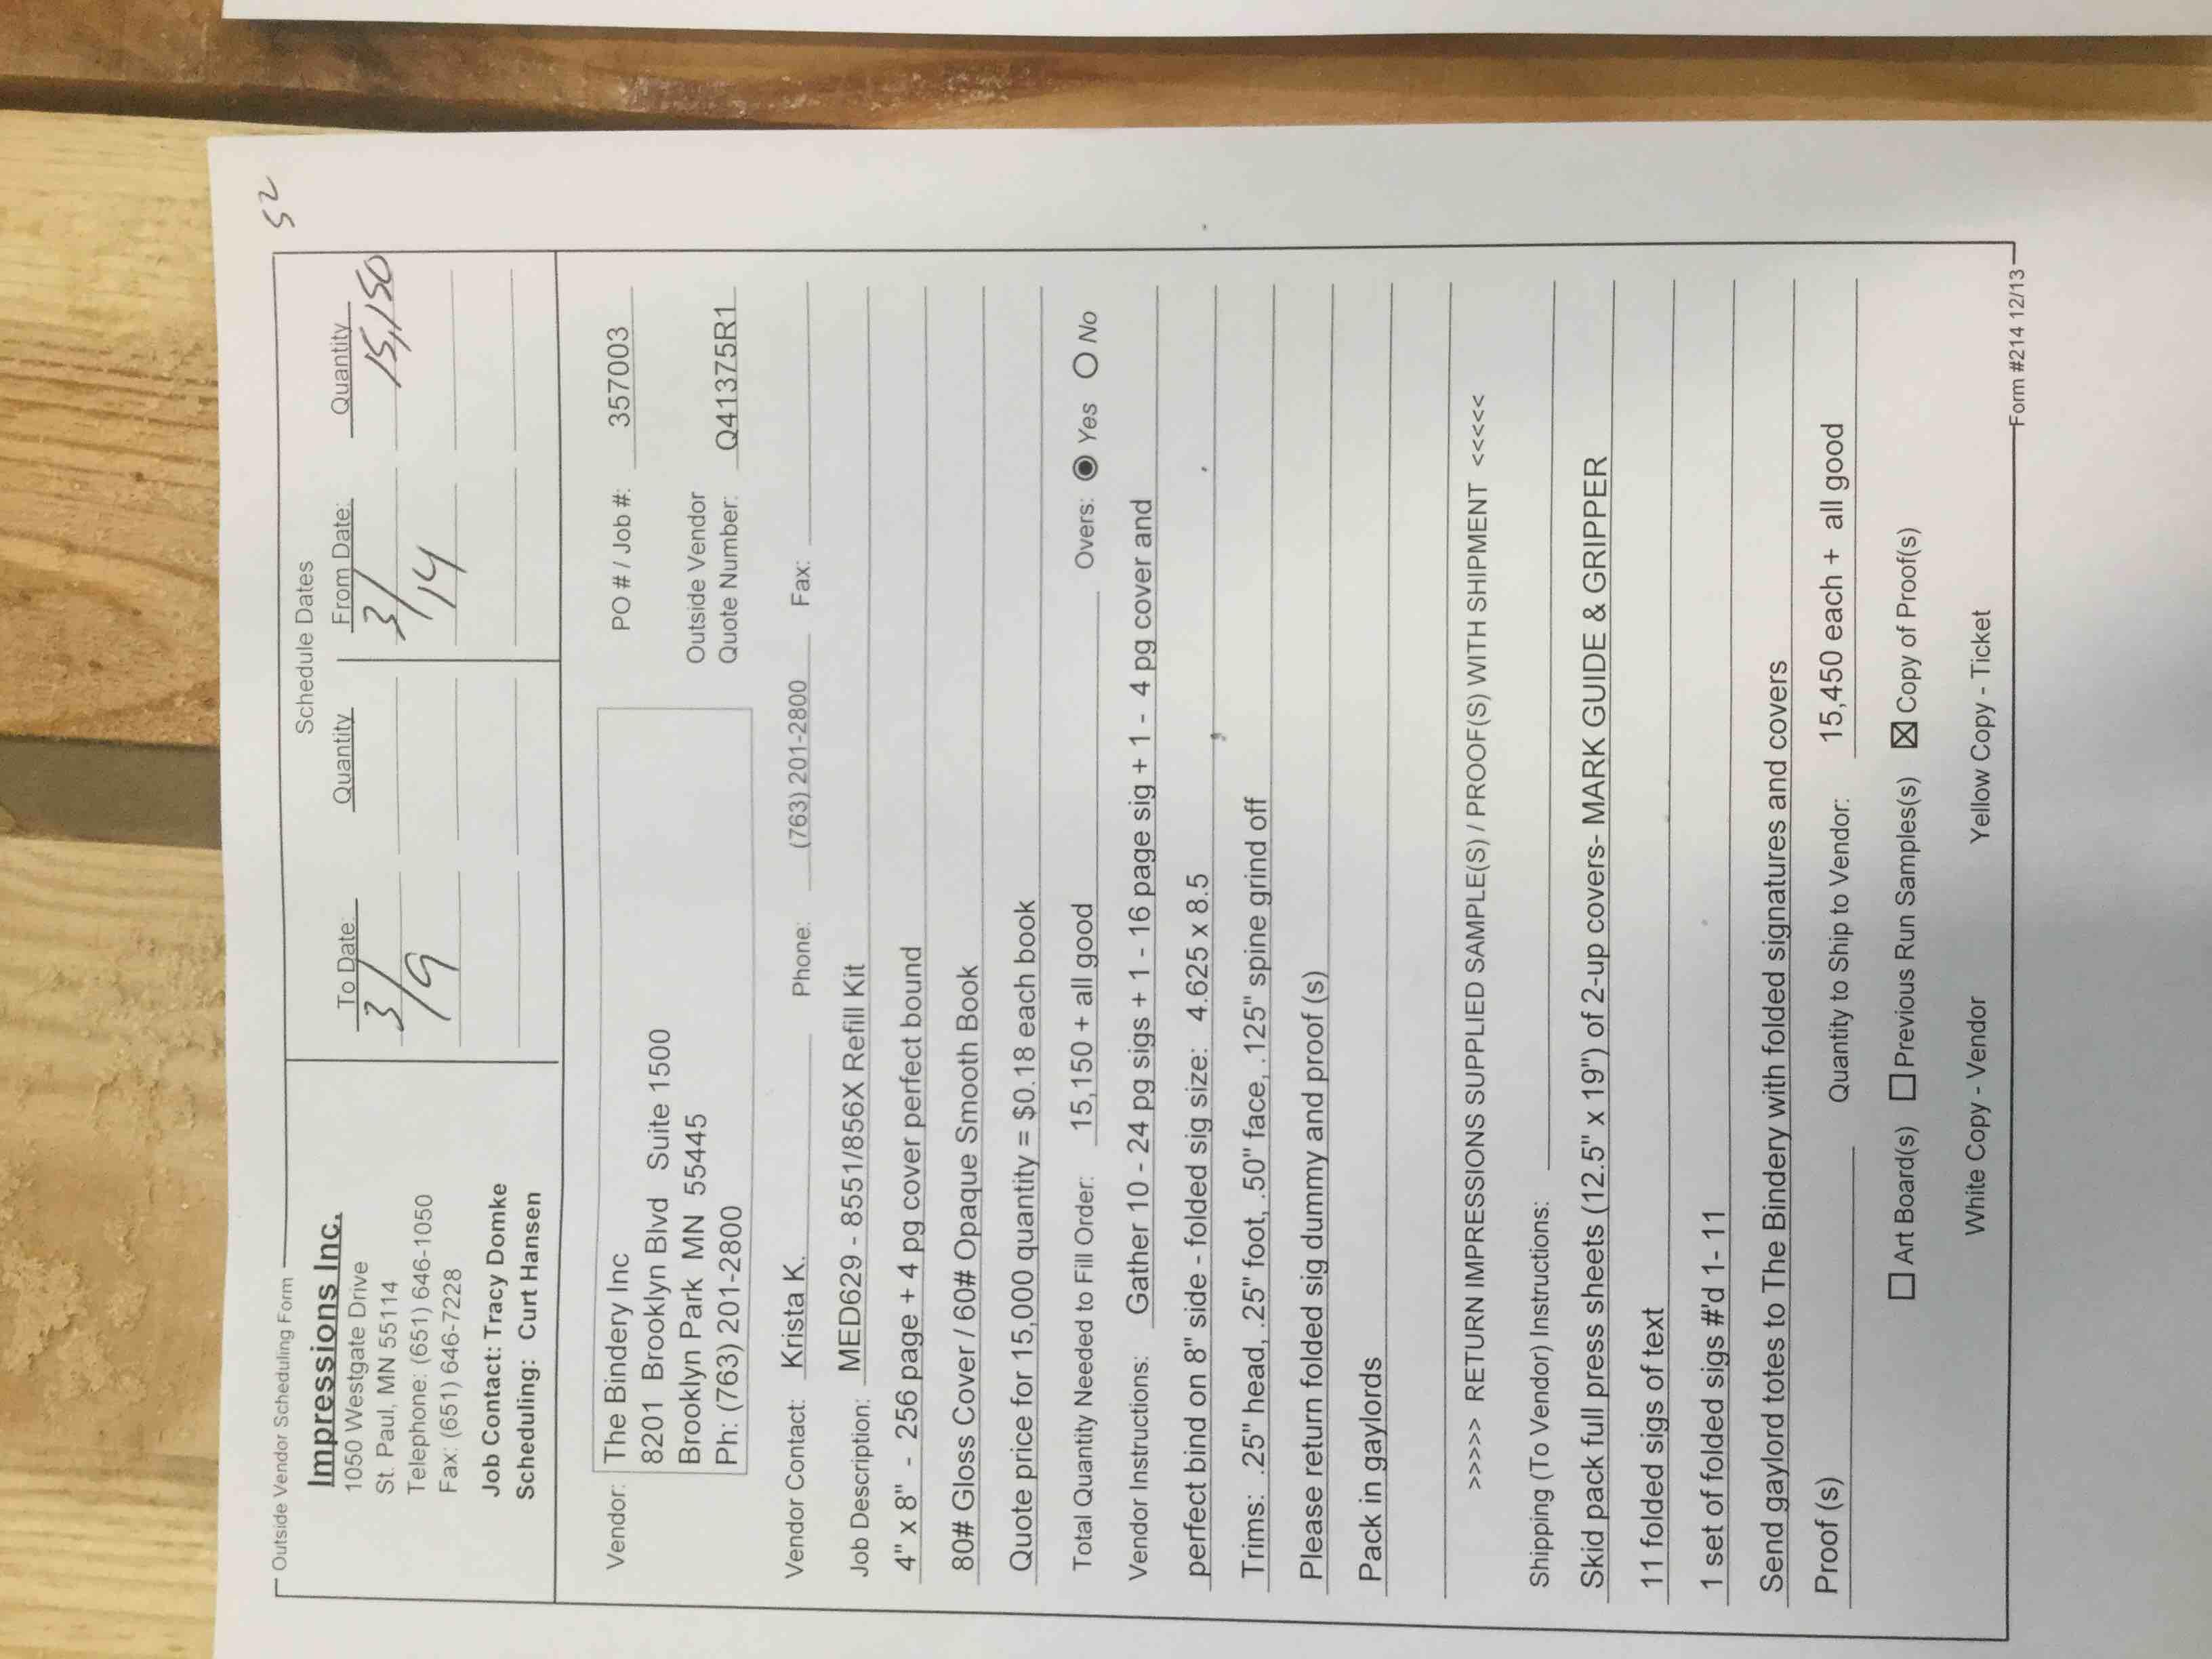 52
Outside Vendor Scheduling Form
Impressions Inc.
1050 Westgate Drive
St. Paul, MN 55114
Telephone: (651) 646-1050
Fax: (651) 646-7228
Job Contact: Tracy Domke
Scheduling: Curt Hansen
Schedule Dates
To Date: Quantity From Date: Quantity
3/9 3/14 15,150
Vendor: The Bindery Inc
8201 Brooklyn Blvd Suite 1500
Brooklyn Park MN 55445
Ph: (763) 201-2800
PO # / Job #: 357003
Outside Vendor
Quote Number: Q41375R1
Vendor Contact: Krista K. Phone: (763) 201-2800 Fax:
Job Description: MED629 - 8551/856X Refill Kit
4" x 8" - 256 page + 4 pg cover perfect bound
80# Gloss Cover / 60# Opaque Smooth Book
Quote price for 15,000 quantity = $0.18 each book
Total Quantity Needed to Fill Order: 15,150 + all good Overs: Yes No
Vendor Instructions: Gather 10 - 24 pg sigs + 1 - 16 page sig + 1 - 4 pg cover and
perfect bind on 8" side - folded sig size: 4.625 x 8.5
Trims: .25" head, .25" foot, .50" face, .125" spine grind off
Please return folded sig dummy and proof (s)
Pack in gaylords
>>>>> RETURN IMPRESSIONS SUPPLIED SAMPLE(S) / PROOF(S) WITH SHIPMENT <<<<<
Shipping (To Vendor) Instructions:
Skid pack full press sheets (12.5" x 19") of 2-up covers- MARK GUIDE & GRIPPER
11 folded sigs of text
1 set of folded sigs #'d 1- 11
Send gaylord totes to The Bindery with folded signatures and covers
Proof (s) Quantity to Ship to Vendor: 15,450 each + all good
Art Board(s) Previous Run Samples(s) Copy of Proof(s)
White Copy - Vendor Yellow Copy - Ticket
Form #214 12/13